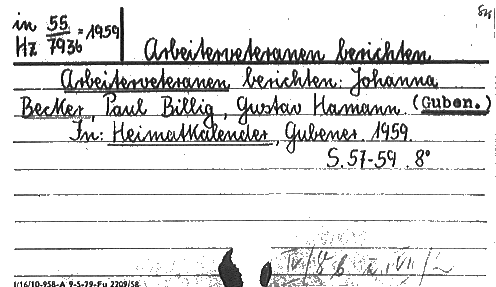 in 55 = 1959
Hz 7936
Arbeiterveteranen berichten
Arbeiterveteranen berichten: Johanna
Becker, Paul Billig, Gustav Hamann. (Guben.)
In: Heimatkalender, Gubener. 1959.
S. 57-59. 8°
I/16/10-958-A 9-5-79-Fu 2209/58